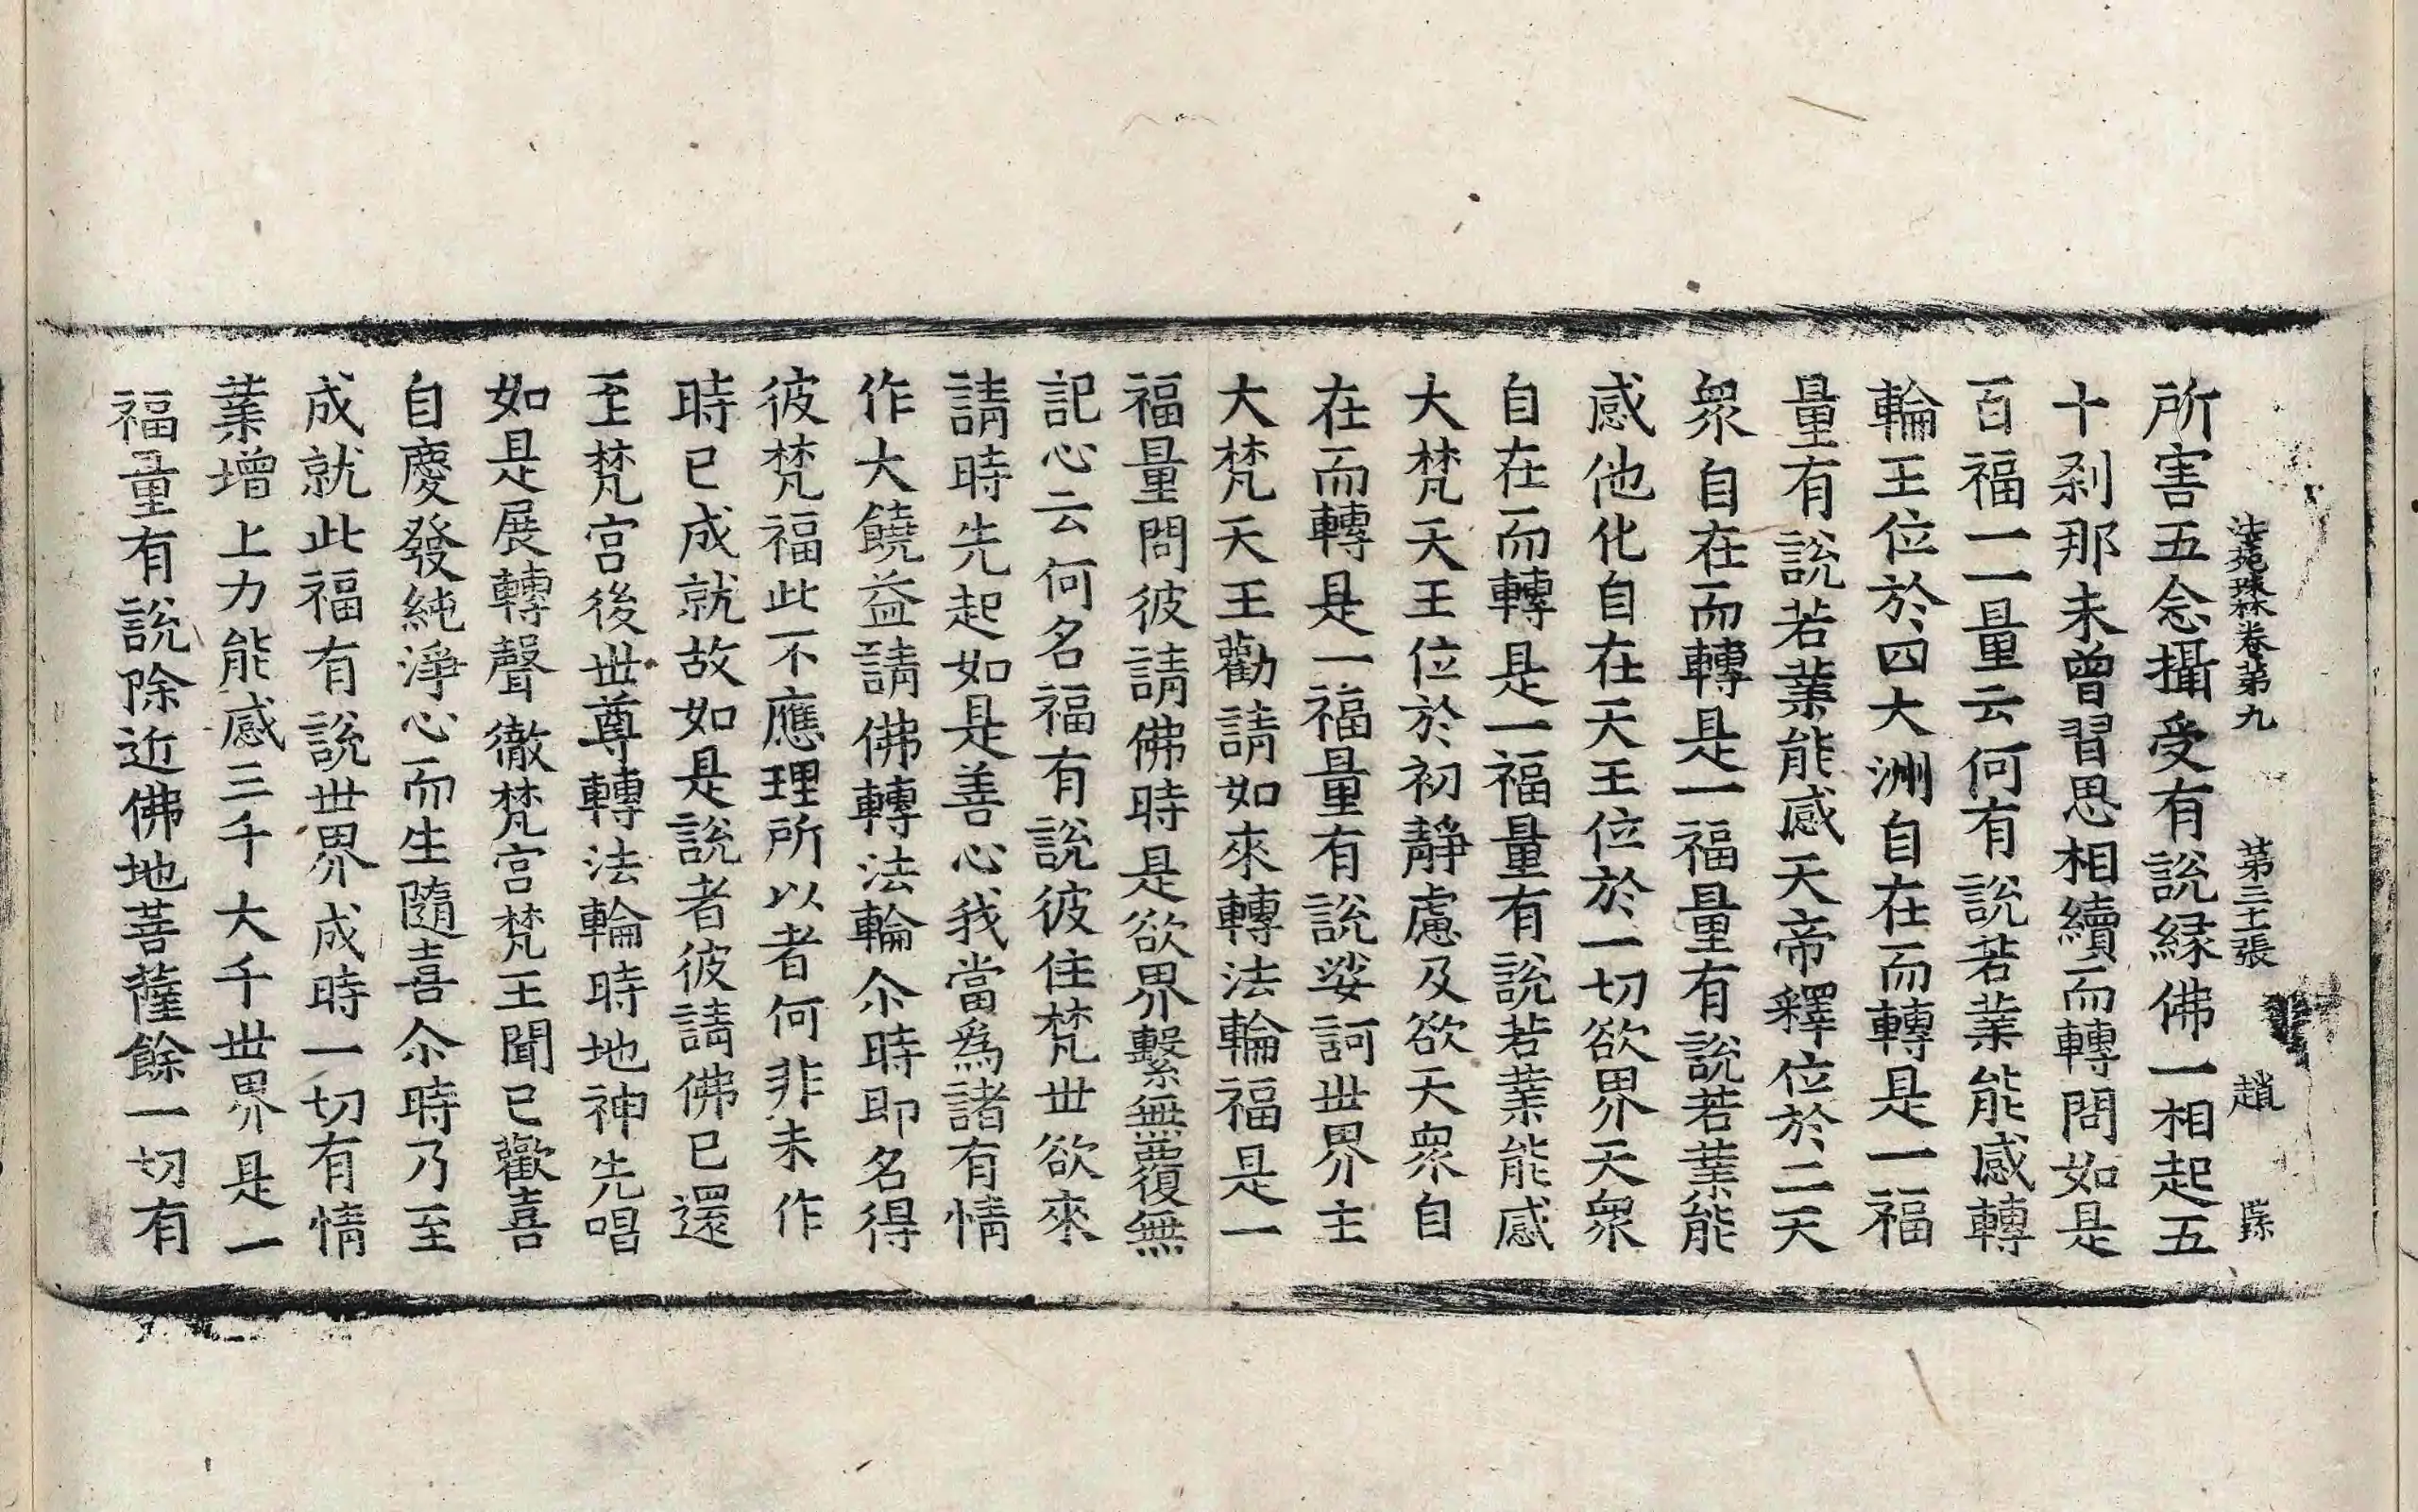 法苑珠林卷第九 第三十張 趙
所害五念攝受有說緣佛一相起五
十剎那未曾習思相續而轉問如是
百福一一量云何有說若業能感轉
輪王位於四大洲自在而轉是一福
量有說若業能感天帝釋位於二天
衆自在而轉是一福量有說若業能
感他化自在天王位於一切欲界天衆
自在而轉是一福量有說若業能感
大梵天王位於初靜慮及欲天衆自
在而轉是一福量有說娑訶世界主
大梵天王勸請如來轉法輪福是一
福量問彼請佛時是欲界繫無覆無
記心云何名福有說彼住梵世欲來
請時先起如是善心我當爲諸有情
作大饒益請佛轉法輪尒時即名得
彼梵福此不應理所以者何非未作
時已成就故如是說者彼請佛已還
至梵宮後世尊轉法輪時地神先唱
如是展轉聲徹梵宮梵王聞已歡喜
自慶發純淨心而生隨喜尒時乃至
成就此福有說世界成時一切有情
業增上力能感三千大千世界是一
福量有說除近佛地菩薩餘一切有